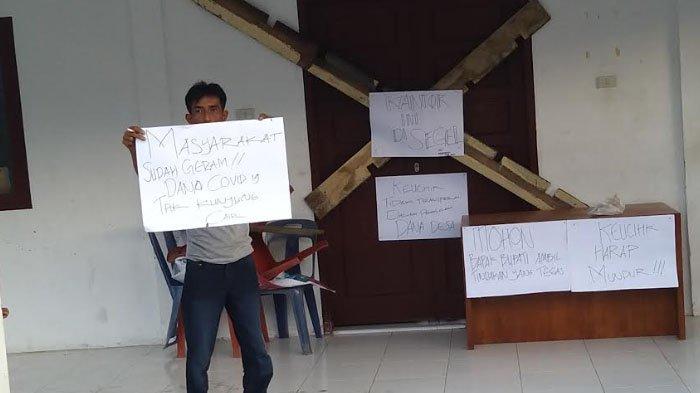 MASYARAKAT
SUDAH GERAM!!
DANA COVID 19
TAK KUNJUNG
CAIR
KANTOR
INI
DI SEGEL
KEUCHIK
TIDAK TRANSPARAN
DALAM
DANA DESA
MOHON
BAPAK BUPATI AMBIL
TINDAKAN YANG TEGAS
KEUCHIK
HARAP
MUNDUR!!!